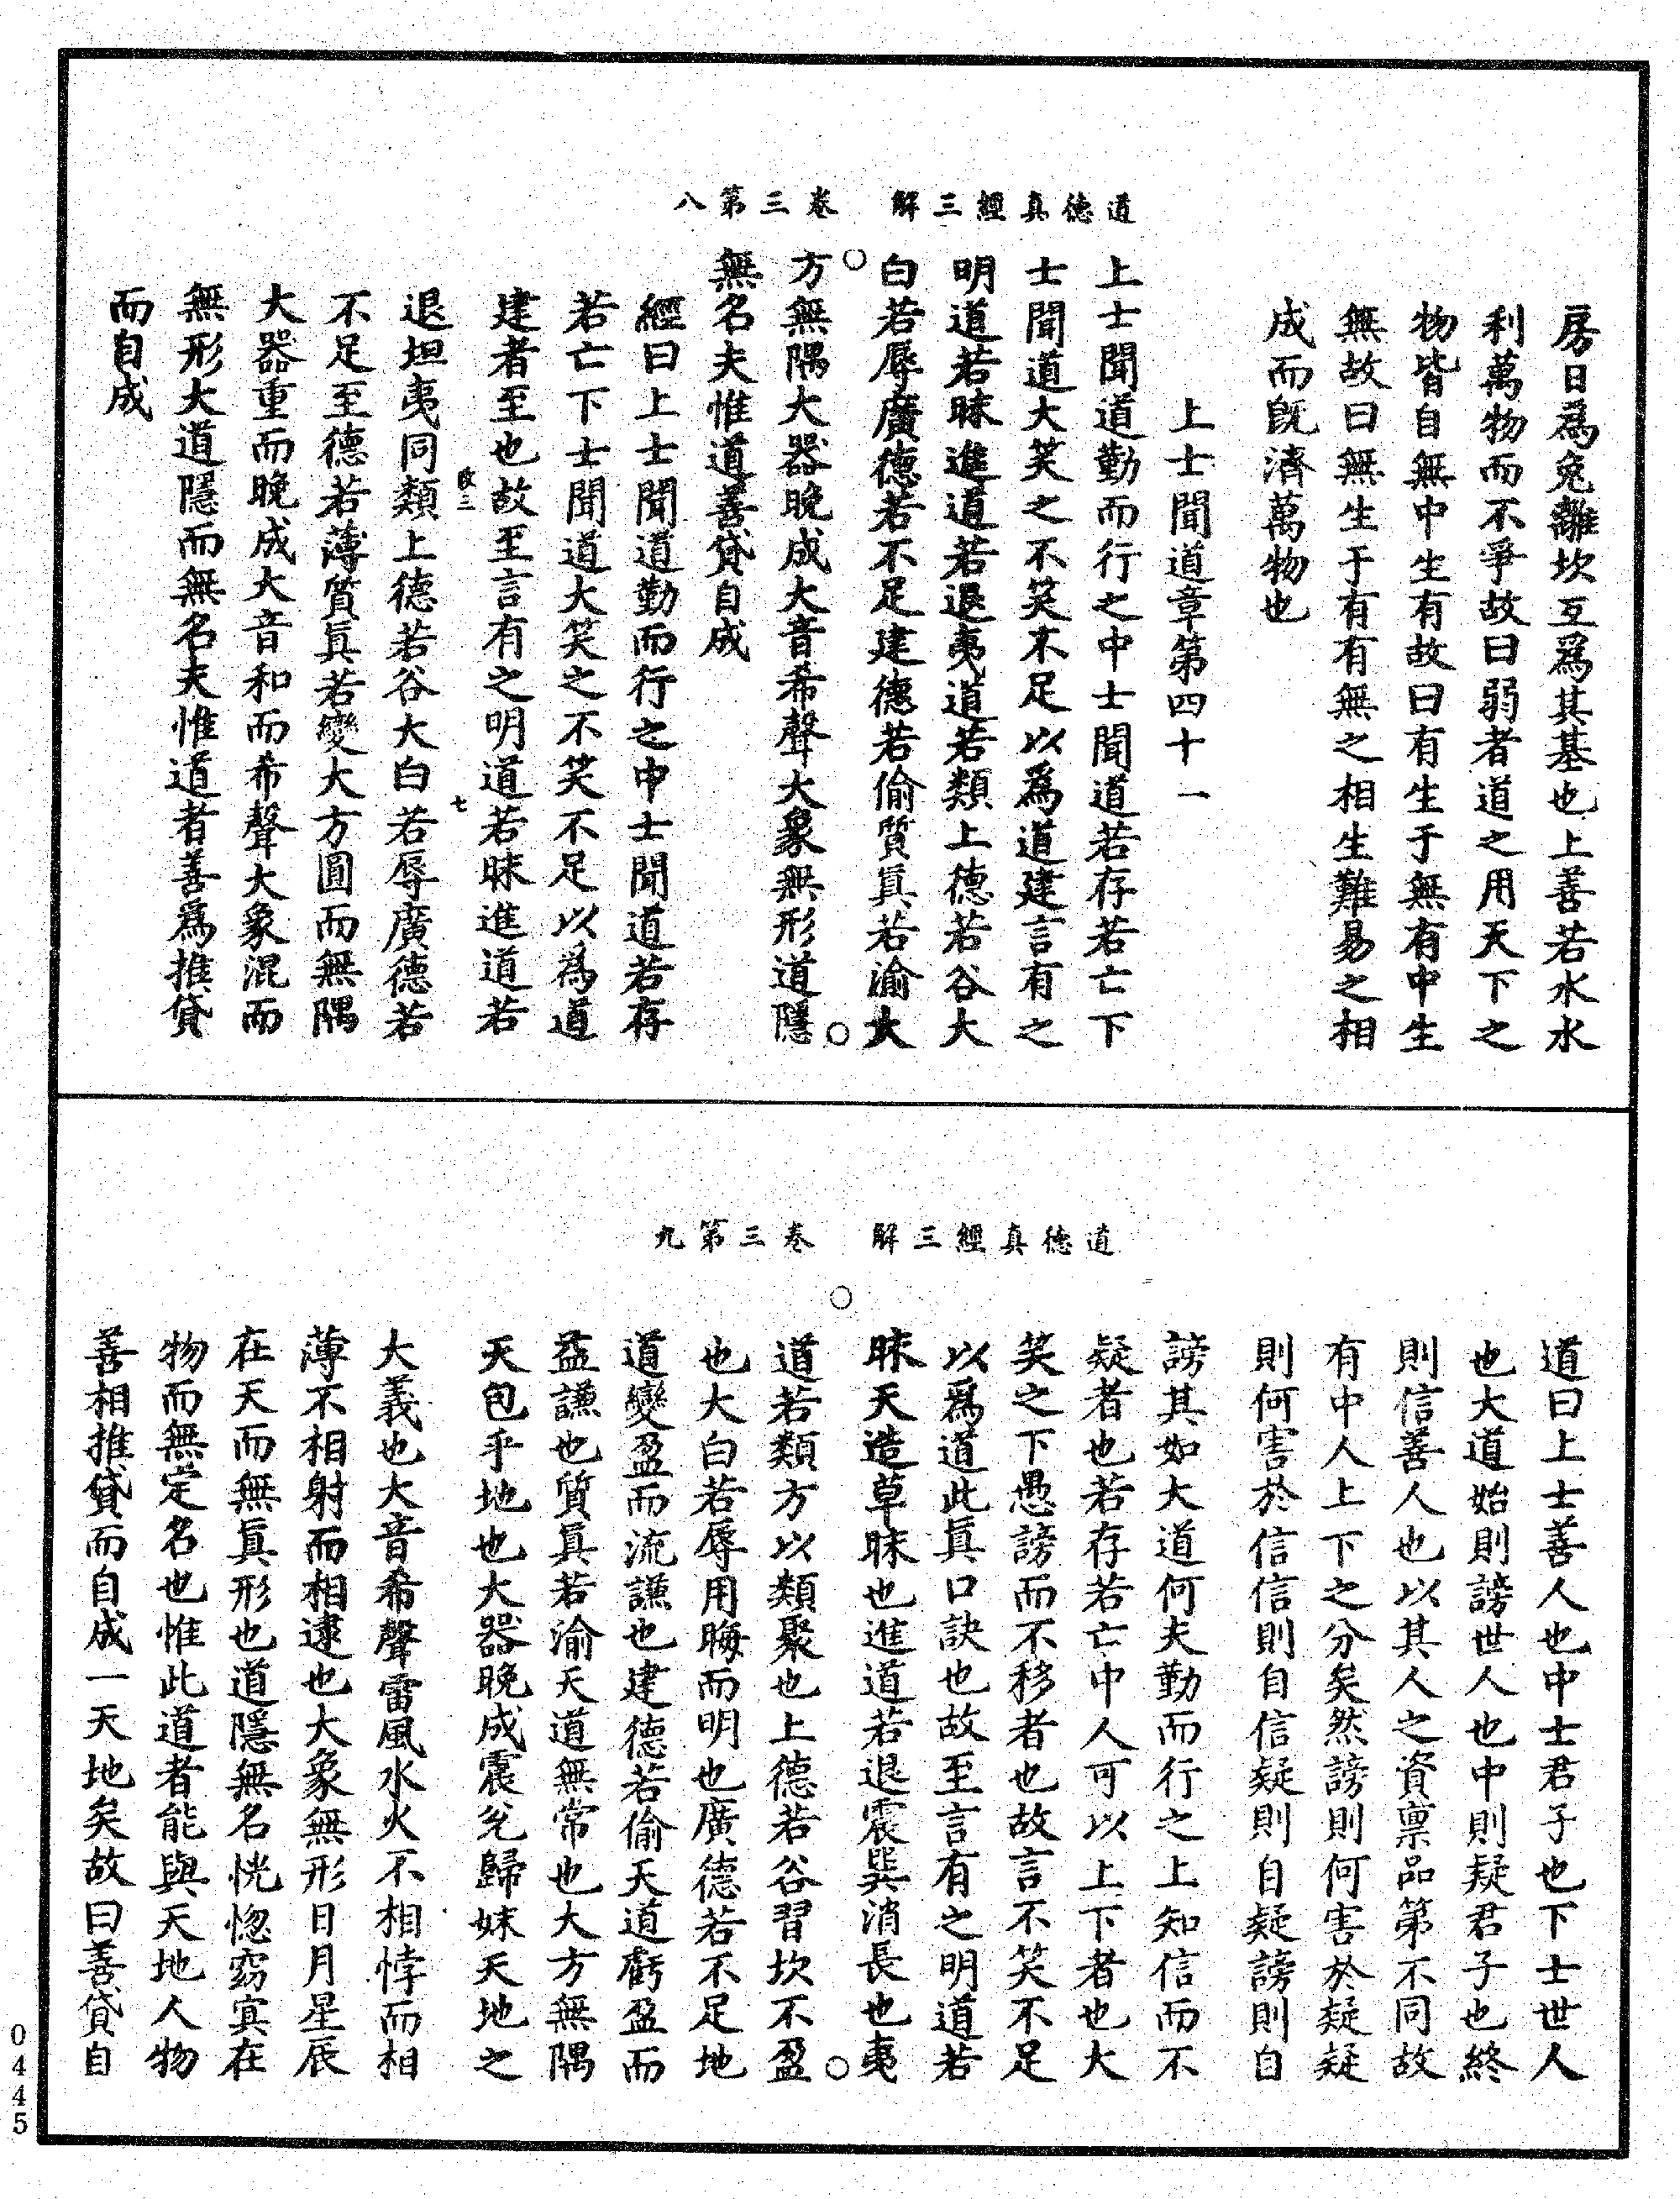 道德真經三解　卷三第八
房日為兔離坎互為其基也上善若水水
利萬物而不爭故曰弱者道之用天下之
物皆自無中生有故曰有生于無有中生
無故曰無生于有有無之相生難易之相
成而旣濟萬物也
上士聞道章第四十一
上士聞道勤而行之中士聞道若存若亡下
士聞道大笑之不笑不足以為道建言有之
明道若昧進道若退夷道若類上德若谷大
白若辱廣德若不足建德若偷質真若渝大
方無隅大器晚成大音希聲大象無形道隱
無名夫惟道善貸自成
經曰上士聞道勤而行之中士聞道若存
若亡下士聞道大笑之不笑不足以為道
建者至也故至言有之明道若昧進道若
七
退坦夷同類上德若谷大白若辱廣德若
不足至德若薄質真若變大方圓而無隅
大器重而晚成大音和而希聲大象混而
無形大道隱而無名夫惟道者善為推貸
而自成
道德真經三解　卷三第九
道曰上士善人也中士君子也下士世人
也大道始則謗世人也中則疑君子也終
則信善人也以其人之資禀品第不同故
有中人上下之分矣然謗則何害於疑疑
則何害於信信則自信疑則自疑謗則自
謗其如大道何夫勤而行之上知信而不
疑者也若存若亡中人可以上下者也大
笑之下愚謗而不移者也故言不笑不足
以為道此真口訣也故至言有之明道若
昧天造草昧也進道若退震巽消長也夷
道若類方以類聚也上德若谷習坎不盈
也大白若辱用晦而明也廣德若不足地
道變盈而流謙也建德若偷天道虧盈而
益謙也質真若渝天道無常也大方無隅
天包乎地也大器晚成震兊歸妹天地之
大義也大音希聲雷風水火不相悖而相
薄不相射而相逮也大象無形日月星辰
在天而無真形也道隱無名恍惚窈冥在
物而無定名也惟此道者能與天地人物
善相推貸而自成一天地矣故曰善貸自
0445